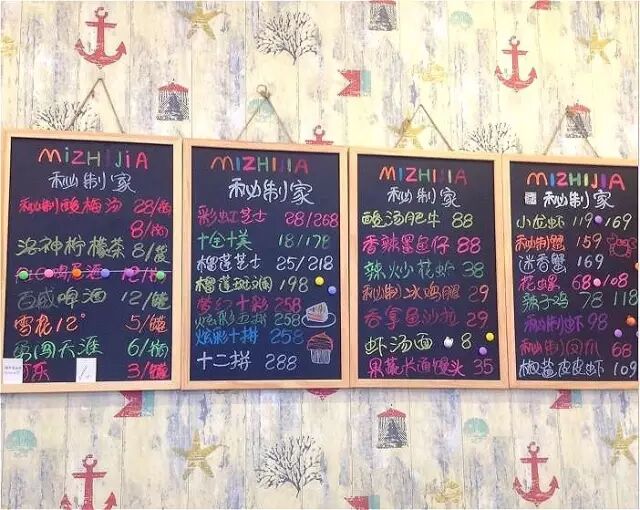 MIZHIJIA
秘制家
秘制酸梅汤 28/
8/
洛神柠檬茶 8/
百威啤酒 12/
雪花12° 5/罐
勇闯天涯 6/
可乐 3/罐
MIZHIJIA
秘制家
彩虹芝士 28/268
十全十美 18/178
榴莲芝士 25/218
榴莲 198
梦幻十彩 258
炫彩 258
炫彩十拼 288
十二拼 288
MIZHIJIA
秘制家
酸汤肥牛 88
香辣墨鱼仔 88
辣炒花蛤 38
秘制冰鸡腿 29
吞拿鱼沙拉 29
虾汤面 8
果蔬长面馒头 35
MIZHIJIA
秘制家
小龙虾 119 169
秘制蟹 159
迷香蟹 169
花螺 68 108
辣子鸡 78 118
秘制小虾 98
秘制 68
椒盐皮皮虾 109